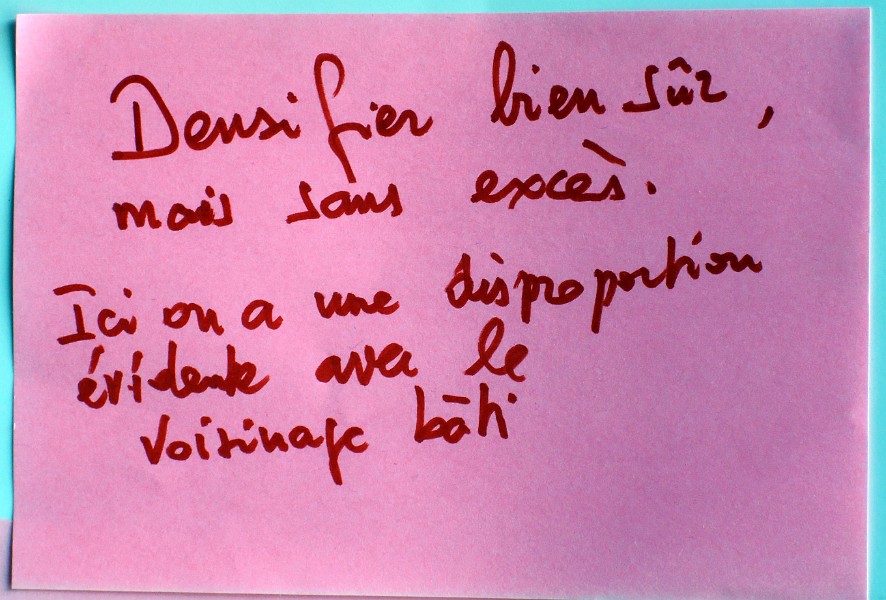 Densifier bien sûr,
mais sans excès.
Ici on a une disproportion
évidente avec le
voisinage bâti